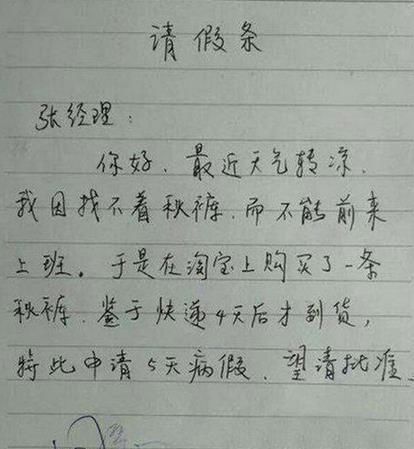 请假条
张经理:
你好、最近天气转凉、
我因找不着秋裤、而不能前来
上班。于是在淘宝上购买了一条
秋裤、鉴于快递4天后才到货,
特此申请5天病假、望请批准